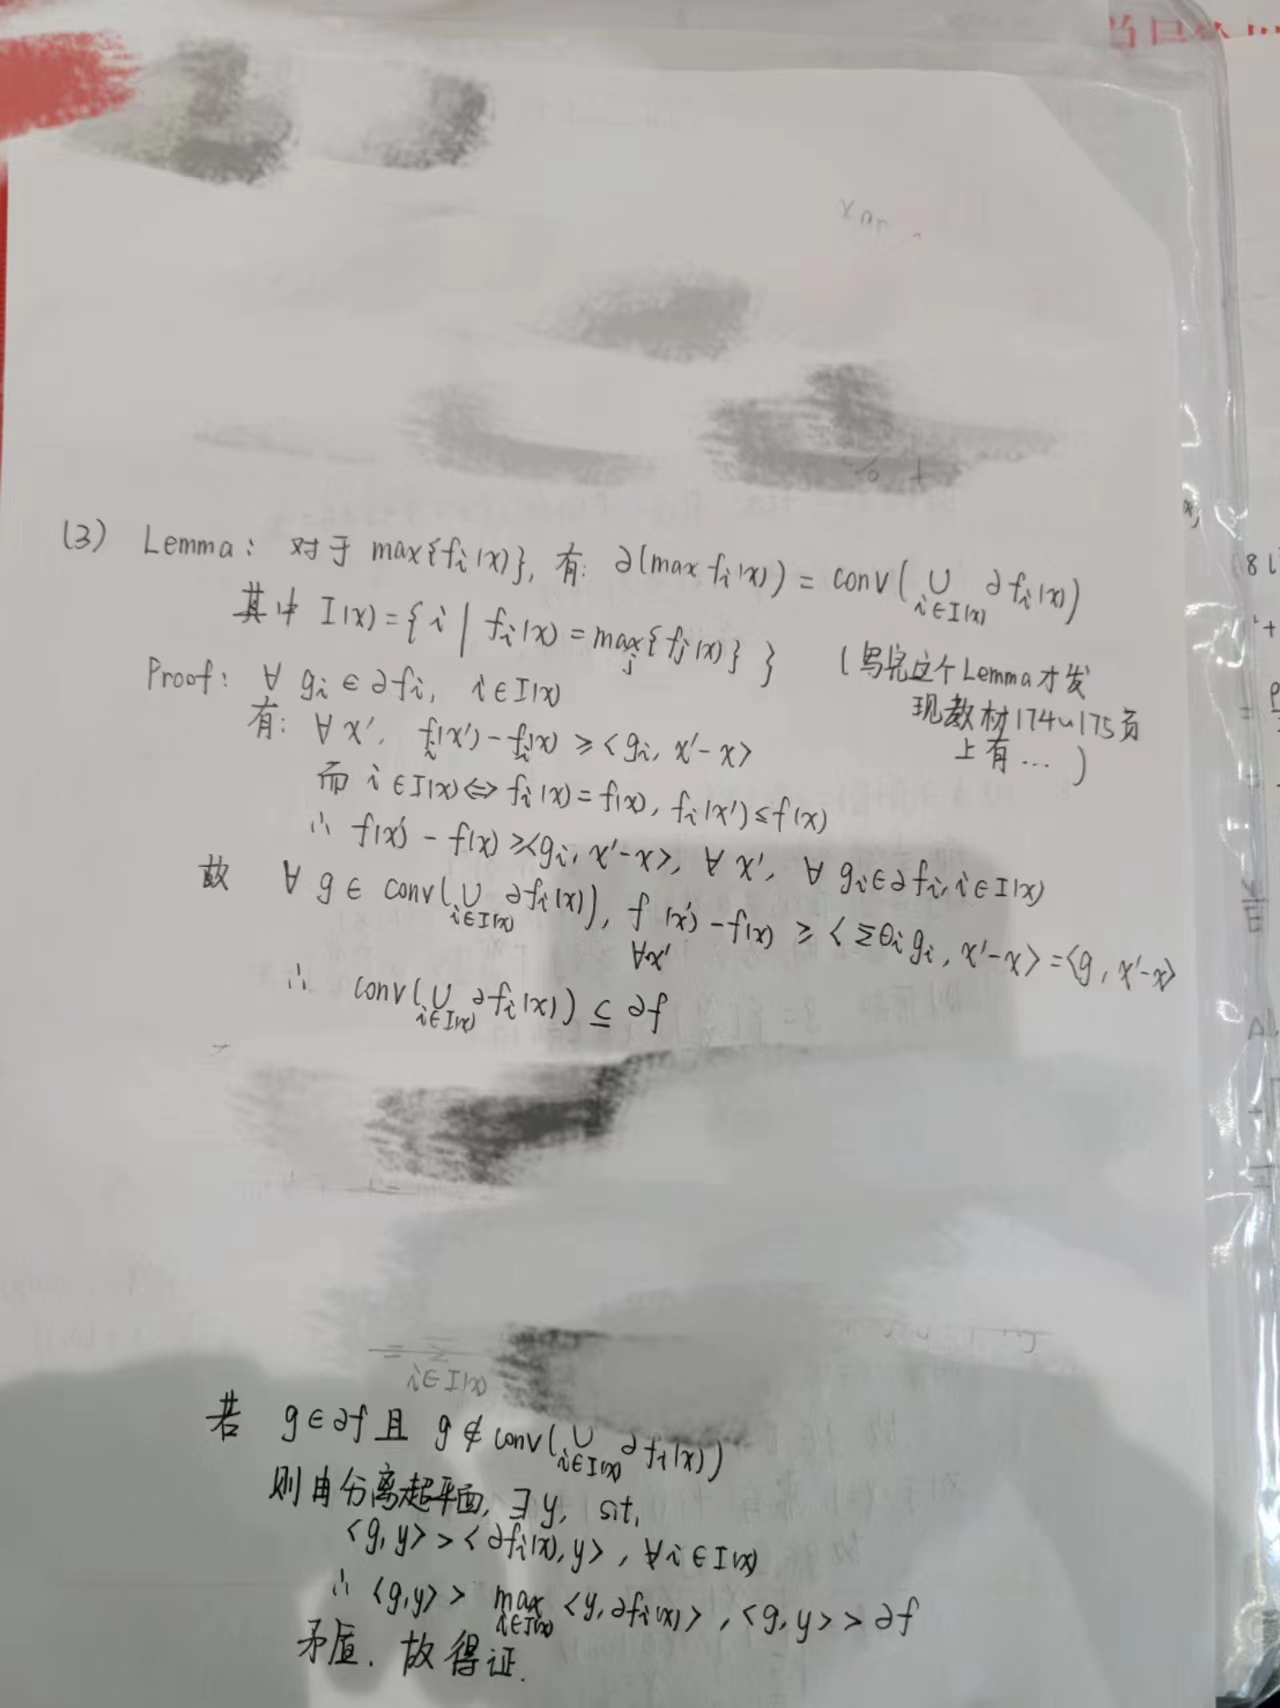 (3) Lemma: 对于 max{fᵢ(x)}, 有: ∂(max fᵢ(x)) = conv(∪_{i∈I(x)} ∂fᵢ(x))
其中 I(x)={i | fᵢ(x)=max_j{fⱼ(x)}}
(写完这个Lemma才发
现教材174~175页
上有...)
Proof: ∀ gᵢ∈∂fᵢ, i∈I(x)
有: ∀ x', fᵢ(x')-fᵢ(x) ≥ <gᵢ, x'-x>
而 i∈I(x)⇔fᵢ(x)=f(x), fᵢ(x')≤f(x)
∴ f(x')-f(x) ≥<gᵢ, x'-x>, ∀ x', ∀ gᵢ∈∂fᵢ, i∈I(x)
故 ∀ g∈ conv(∪_{i∈I(x)} ∂fᵢ(x)), f(x')-f(x) ≥ <Σθᵢgᵢ, x'-x>=<g, x'-x>
∀x'
∴ conv(∪_{i∈I(x)} ∂fᵢ(x)) ⊆ ∂f
i∈I(x)
若 g∈∂f 且 g∉conv(∪_{i∈I(x)} ∂fᵢ(x))
则由分离超平面, ∃ y, s.t.
<g, y> > <∂fᵢ(x), y>, ∀i∈I(x)
∴ <g,y> > max_{i∈I(x)} <y, ∂fᵢ(x)>, <g, y> > ∂f
矛盾. 故得证.